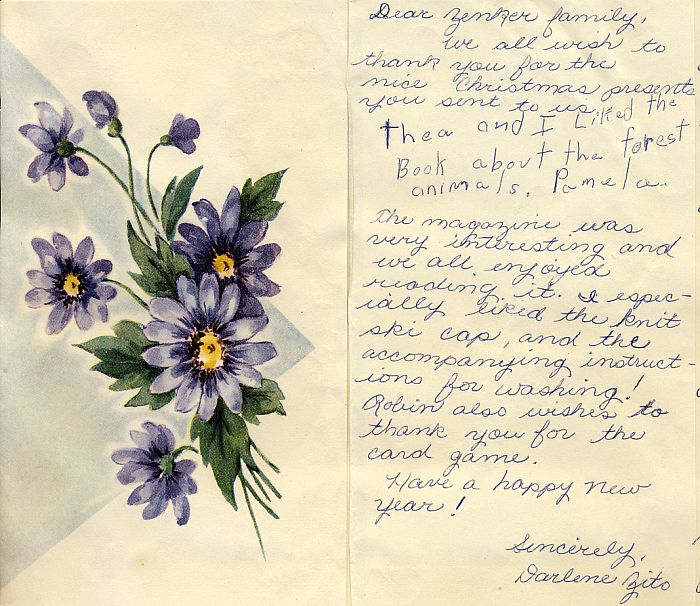 Dear Zenker family,
We all wish to
thank you for the
nice Christmas presents
you sent to us.
Thea and I Liked the
Book about the forest
animals. Pamela.
The magazine was
very interesting and
we all enjoyed
reading it. I espec-
ially liked the knit
ski cap, and the
accompanying instruct-
ions for washing!
Robin also wishes to
thank you for the
card game.
Have a happy new
year!
Sincerely,
Darlene Zito